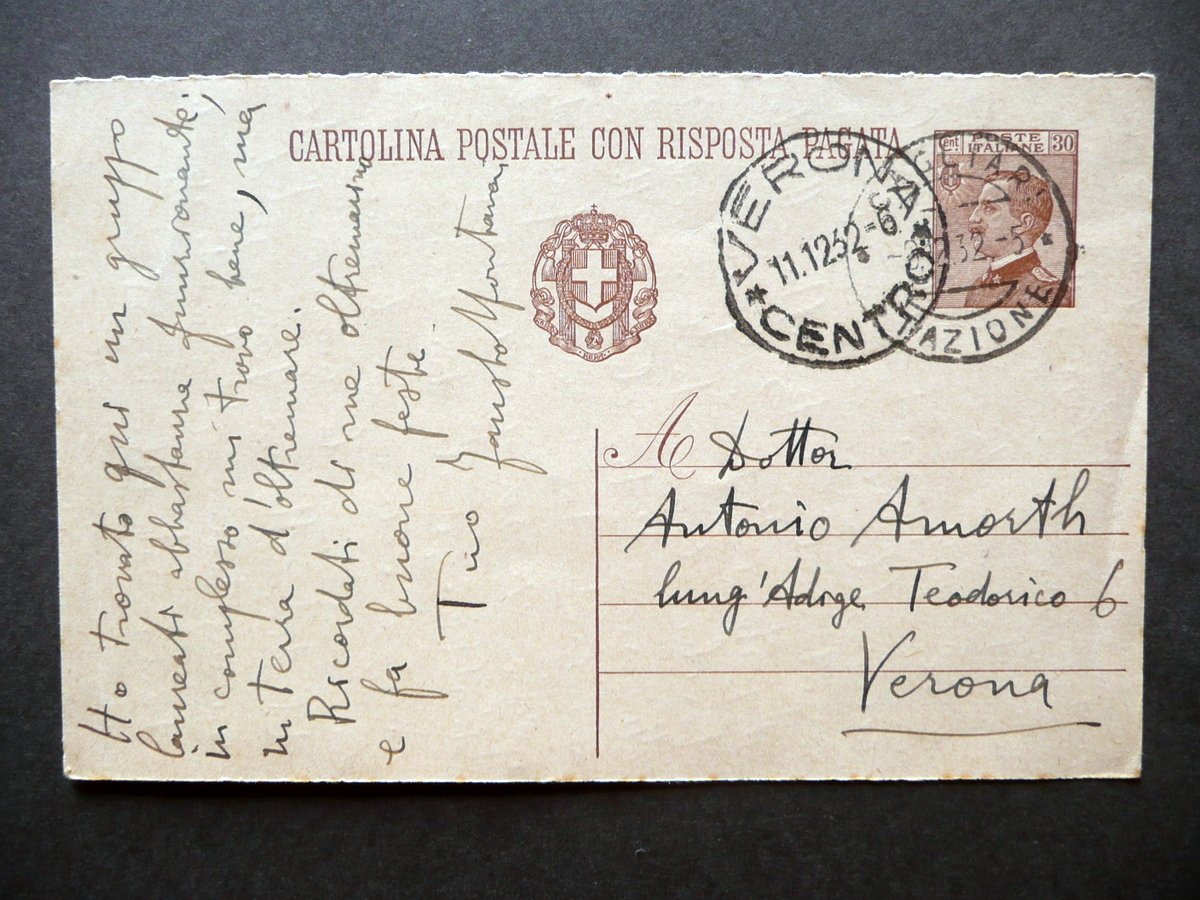 CARTOLINA POSTALE CON RISPOSTA PAGATA
Cent. POSTE ITALIANE 30
VERONA
11.12 32-6
* CENTRO *
32-5 *
AZIONE
A Dottor
Antonio Amorth
lung'Adige Teodorico 6
Verona
Ho trovato qui un gruppo
laureati abbastanza funzionante;
in complesso mi trovo bene, ma
in terra d'oltremare.
Ricordati di me oltremarino
e fa buone feste.
Tuo Fausto Montanari